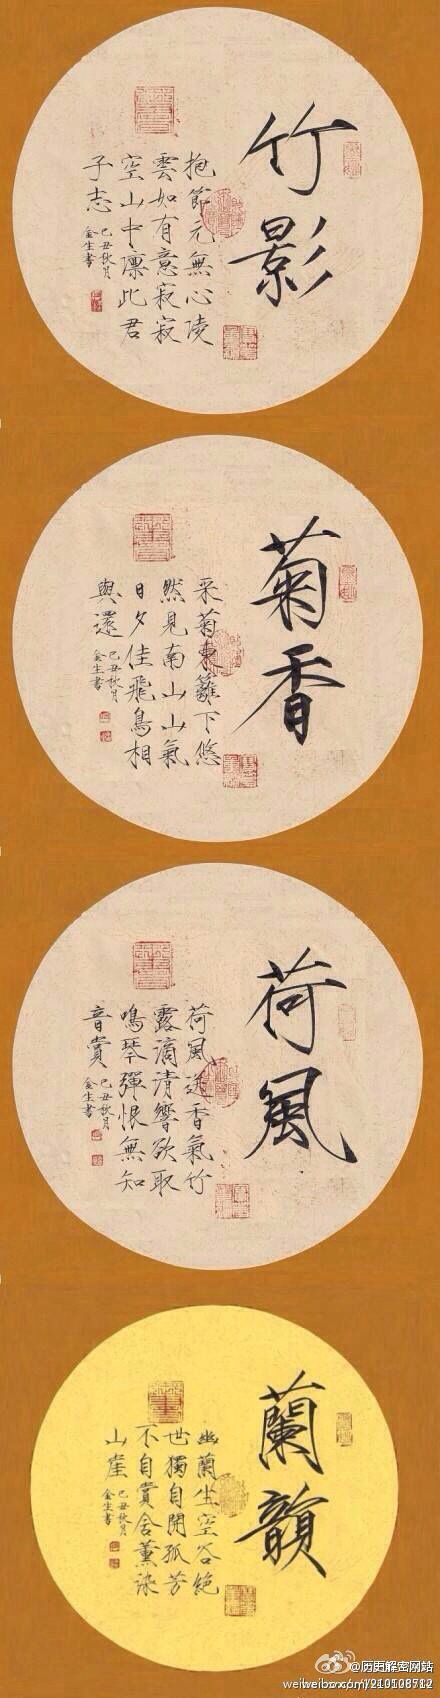 竹影
抱節元無心陵
雲如有意寂寂
空山中凛此君
子志
己丑秋月
金生書
菊香
采菊東籬下悠
然見南山山氣
日夕佳飛鳥相
與還
己丑秋月
金生書
荷風
荷風送香氣竹
露滴清響欲取
鳴琴彈恨無知
音賞
己丑秋月
金生書
蘭韻
幽蘭生空谷絶
世獨自開孤芳
不自賞舍薰染
山崖
己丑秋月
金生書
@历史解密网站